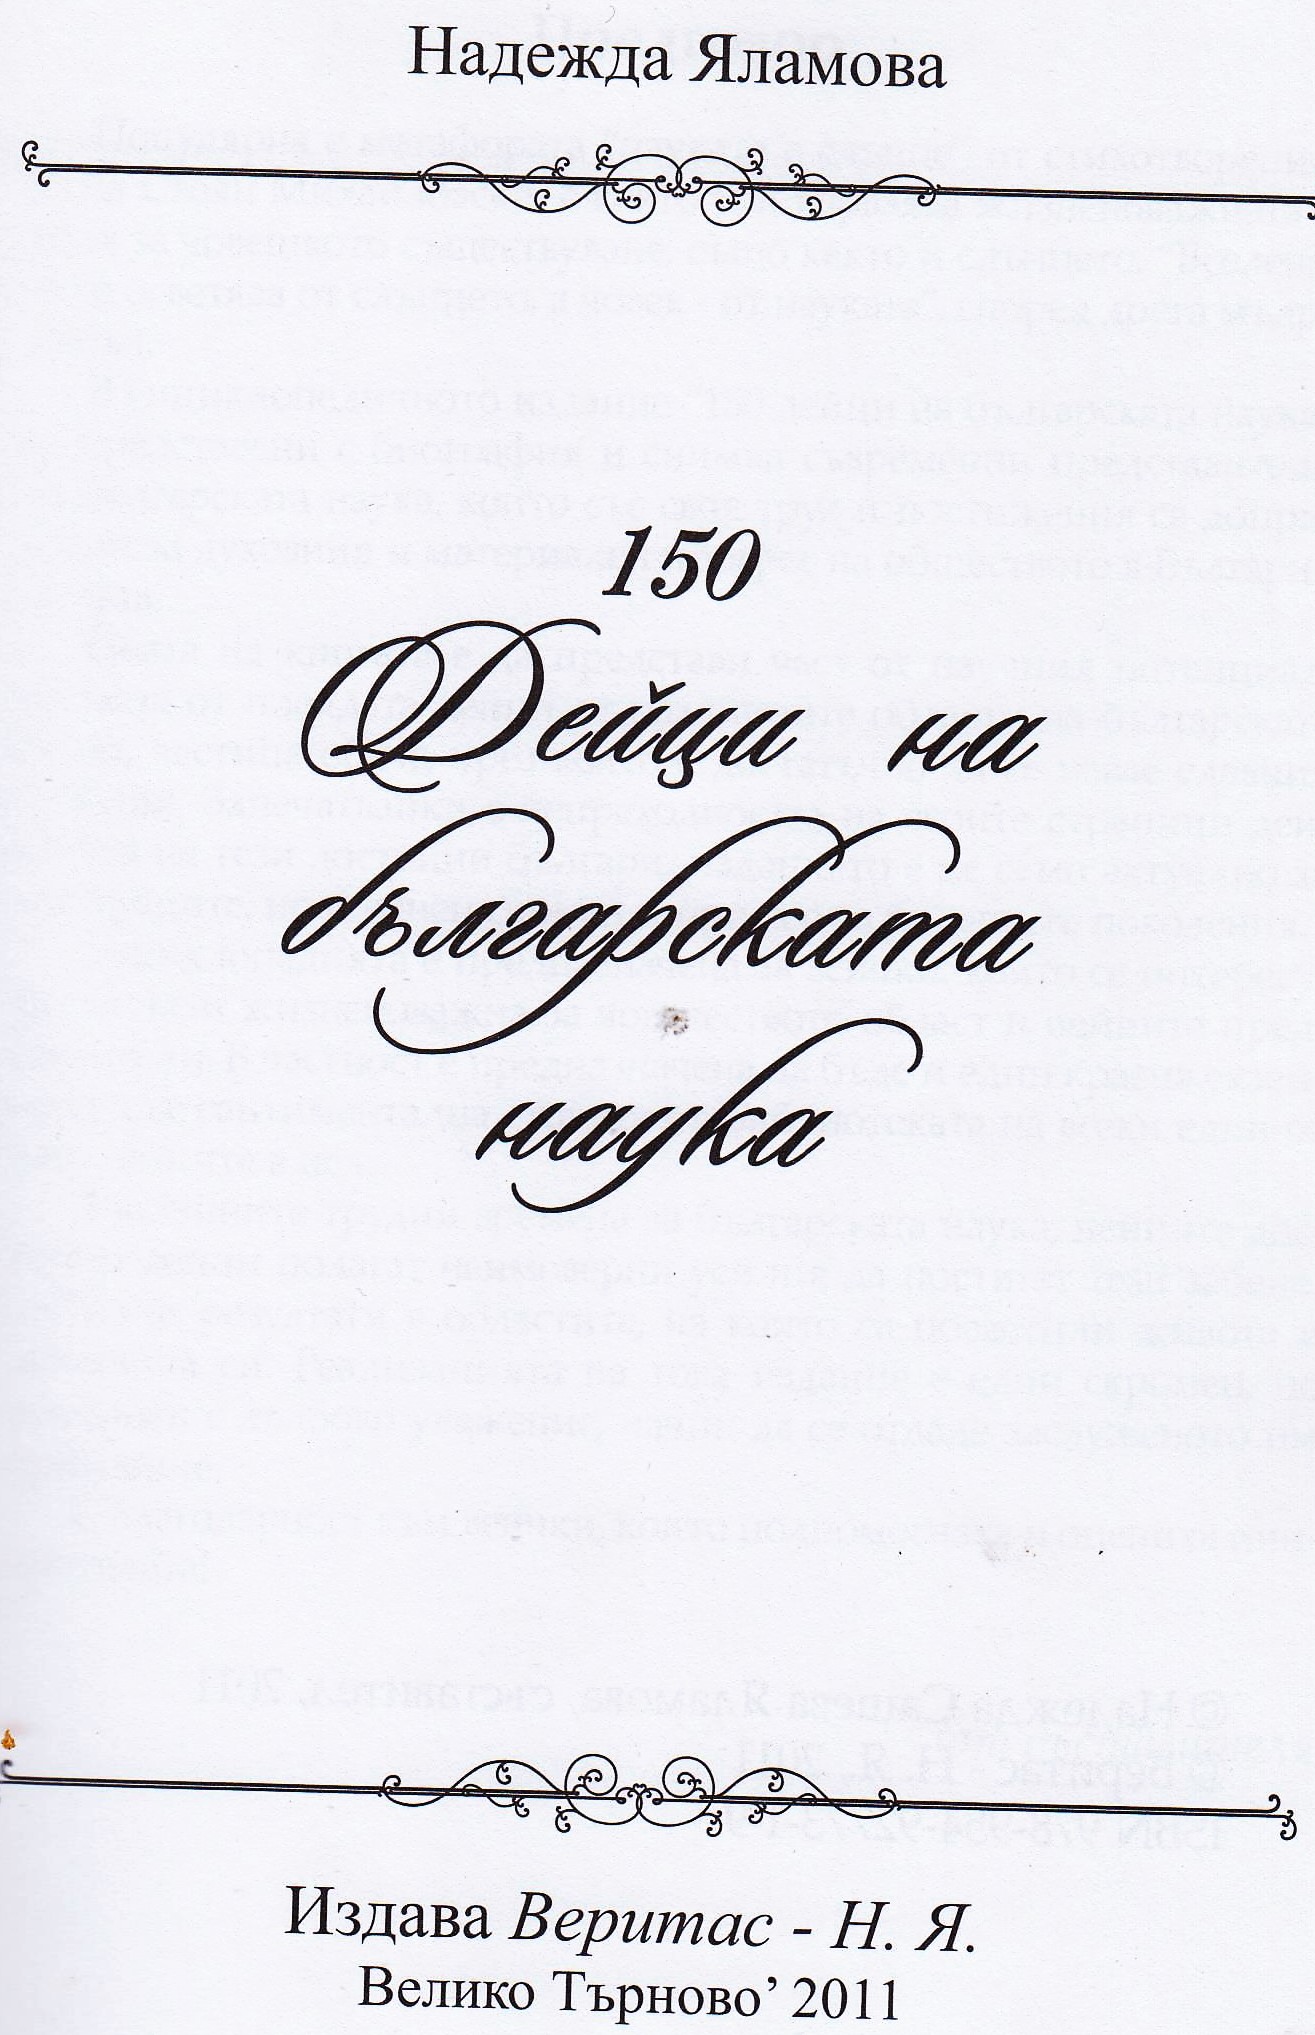 Надежда Яламова
150
Дейци на
българската
наука
Издава Веритас - Н. Я.
Велико Търново’ 2011